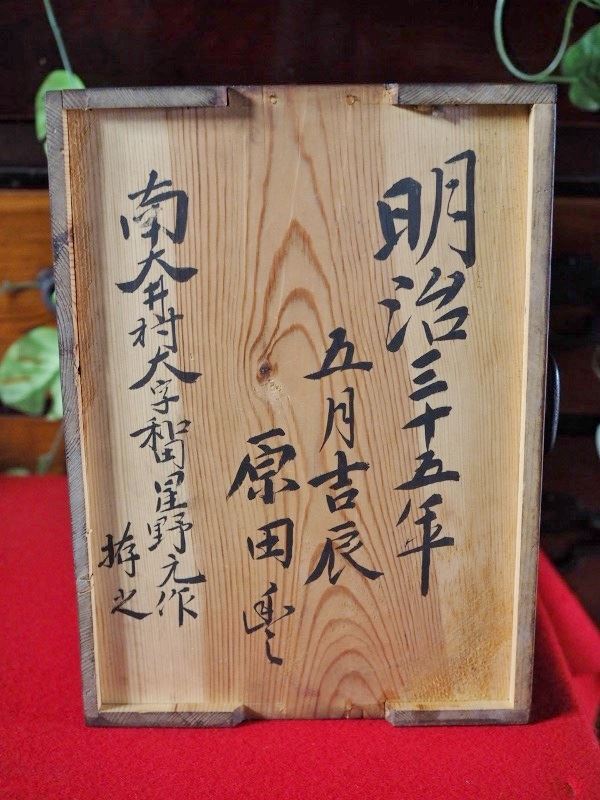 明治三十五年
五月吉辰
原田豊
南大井村大字和田星野元作
拵之